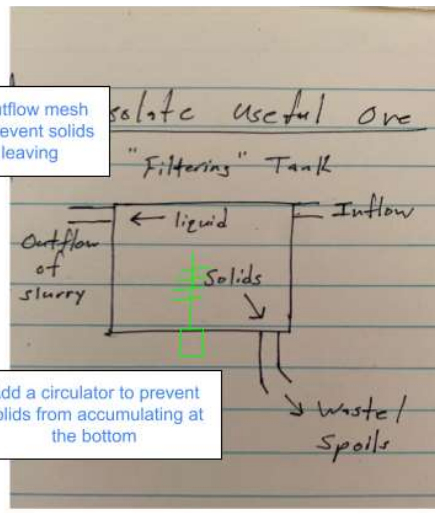 utflow mesh
event solids
leaving
solate Useful Ore
"Filtering" Tank
← liquid
Inflow
Outflow
of
slurry
Solids
dd a circulator to prevent
olids from accumulating at
the bottom
Waste/
Spoils